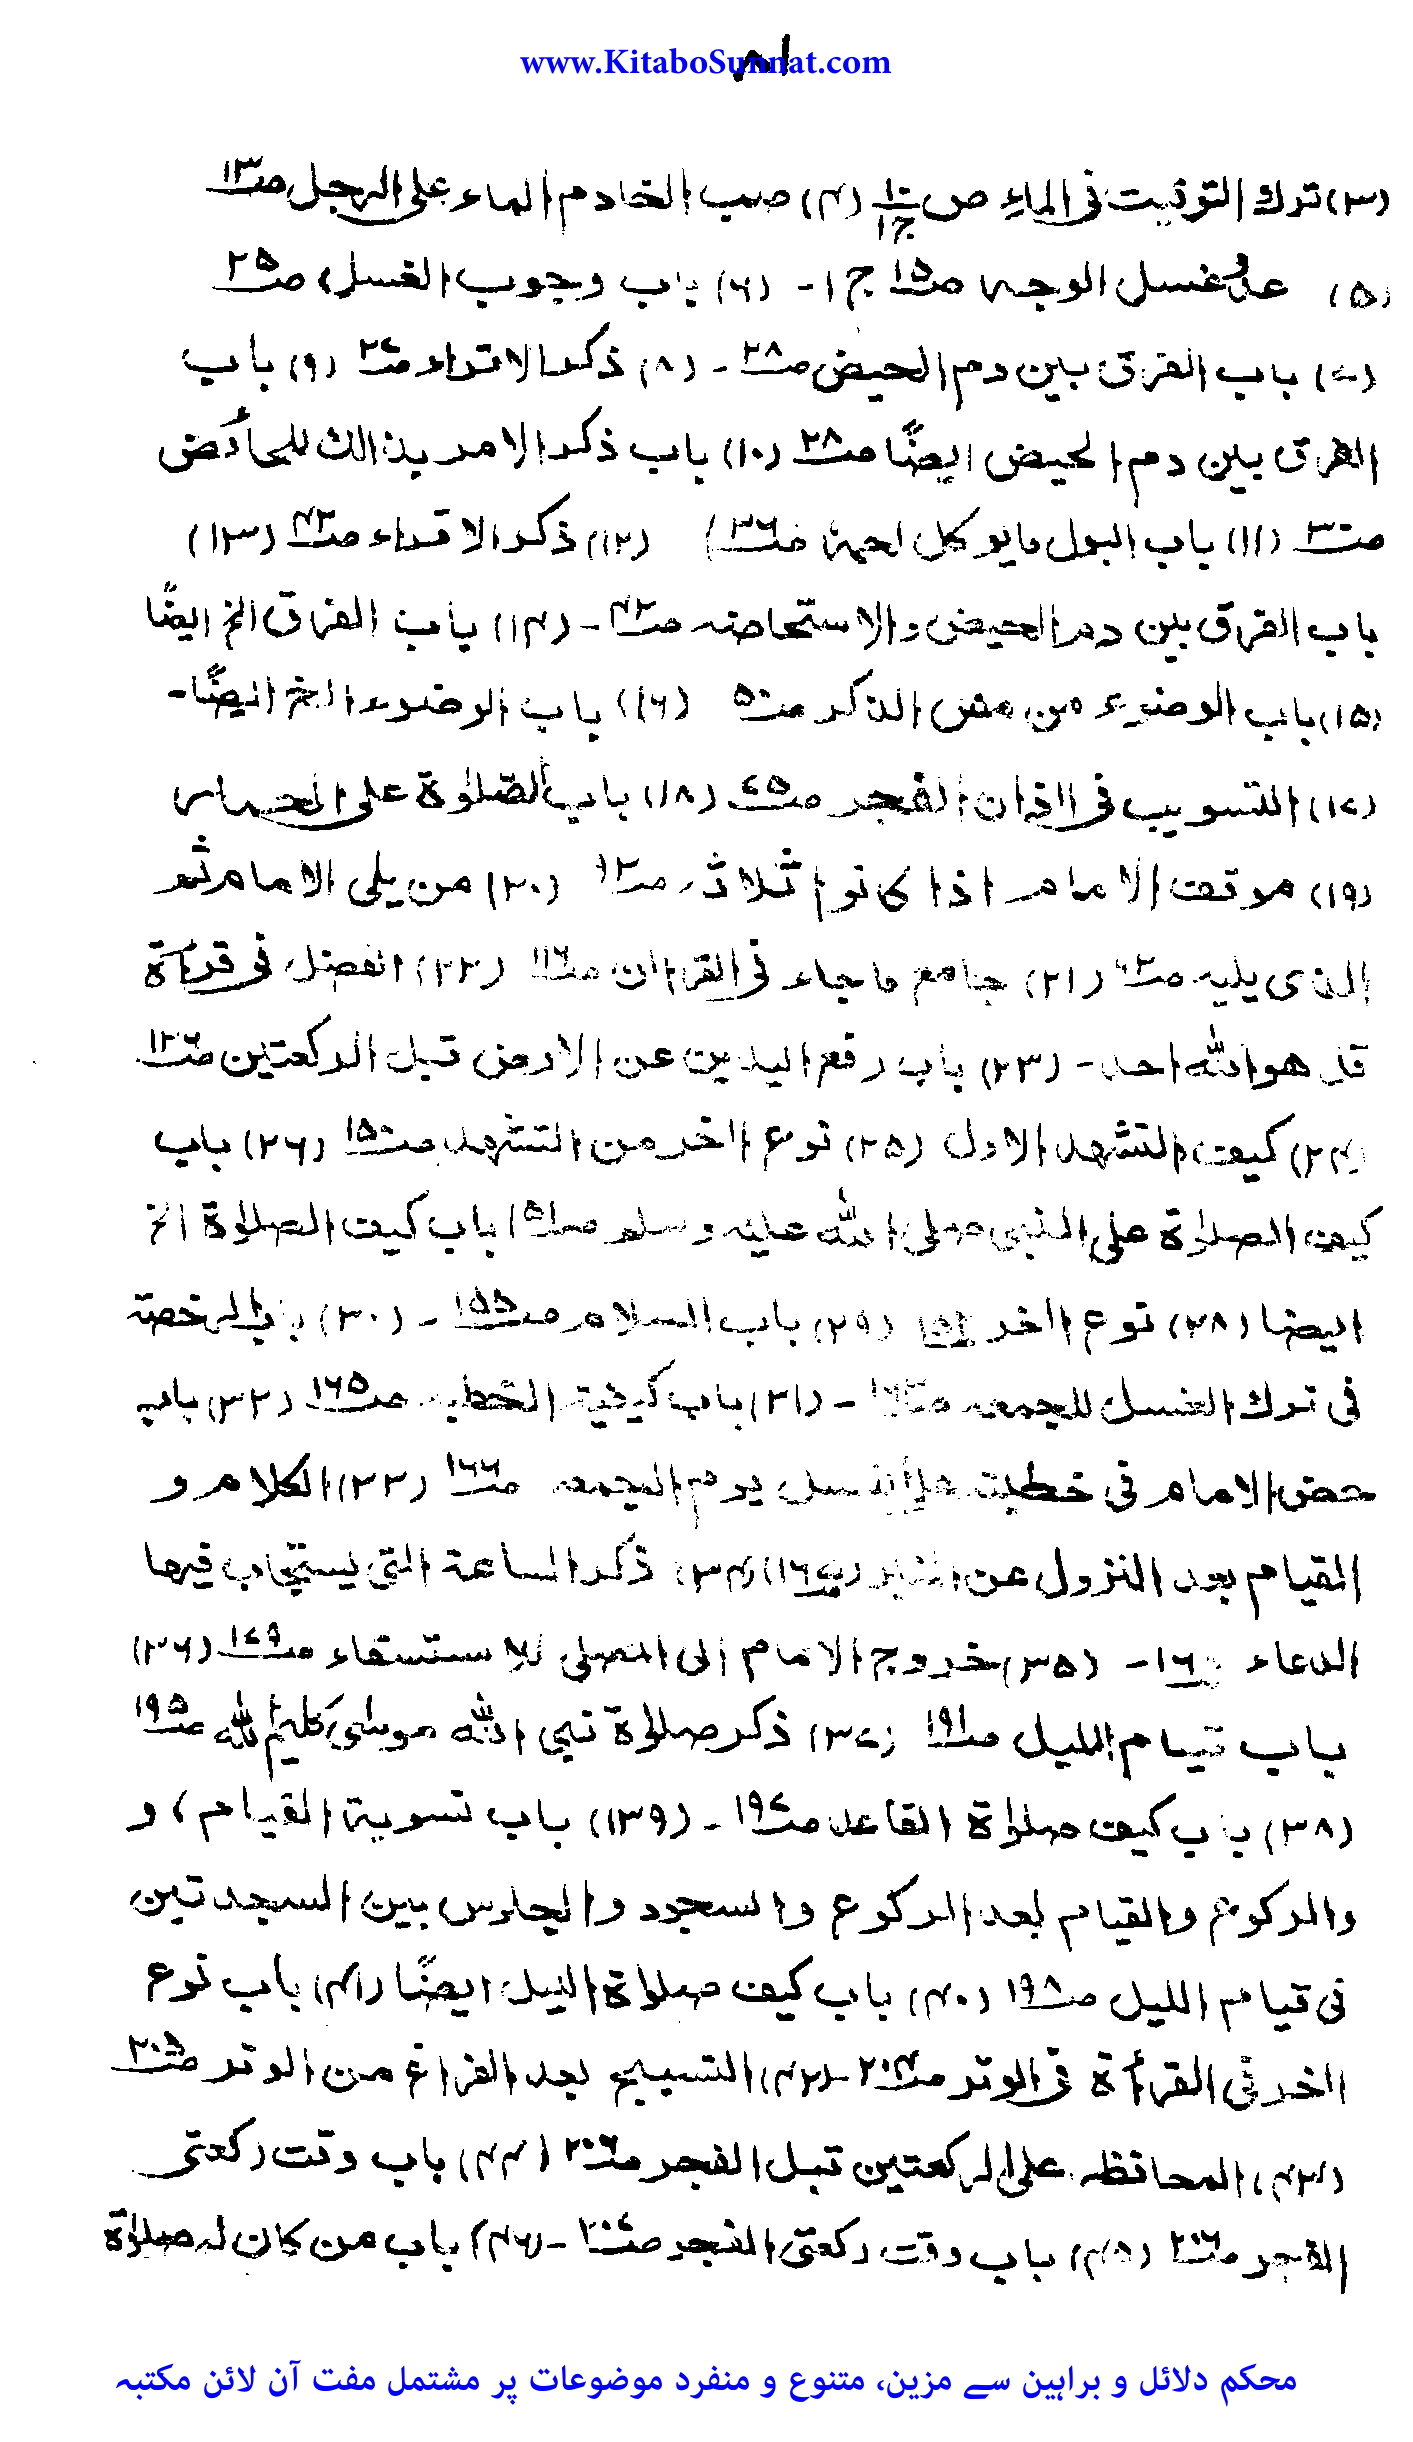 www.KitaboSunnat.com
۸۱
(۳) ترك التوقيت فى الماءِ ص ۱۰ ج۱ (۴) صب الخادم الماء على الرجل صـ۱۳
(۵) عدد غسل الوجہ صـ۱۵ ج ۱ - (۶) باب وجوب الغسل، صـ۲۵
(۷) باب الفرق بين دم الحيض صـ۲۸ - (۸) ذكر الاقراء صـ۲۷ (۹) باب
الفرق بين دم الحيض ايضًا صـ۲۸ (۱۰) باب ذكر الامر بذالك للحائض
صـ۳۰ (۱۱) باب البول مايوكل لحمہٗ صـ۳۶) (۱۲) ذكر الاقراء صـ۴۳ (۱۳)
باب الفرق بين دم الحيض والاستحاضہ صـ۴۳ - (۱۴) باب الفرق الخ ايضًا
(۱۵) باب الوضوء من مس الذكر صـ۵۰ (۱۶) باب الوضوء الخ ايضًا -
(۱۷) التسويب فى اذان الفجر صـ۷۵ (۱۸) باب الصّلٰوة على الحصاير
(۱۹) موقف الامام اذا كانوا ثلاثہ صـ (۲۰) من يلى الامام ثم
الذى يليہ صـ (۲۱) جامع ماجاء فى القراٰن صـ۱۱۶ (۲۲) الفضل فى قرأة
قل هو الله احد - (۲۳) باب رفع اليدين عن الارض قبل الركعتين صـ۱۳۶
(۲۴) كيف التشهد الاول (۲۵) نوع اٰخر من التشهد صـ۱۵۰ (۲۶) باب
كيف الصلٰوة على النبى صلى الله عليہ وسلم صـ۱۵۱ باب كيف الصلٰوة الخ
ايضا (۲۸) نوع اٰخر ۱۵۱ (۲۹) باب السلام صـ۱۵۵ - (۳۰) باب الرخصة
فى ترك الغسل للجمعہ - (۳۱) باب كيفية الخطبہ صـ۱۶۵ (۳۲) باب
حض الامام فى خطبتہ على الغسل يوم الجمعہ صـ۱۶۶ (۳۳) الكلام و
القيام بعد النزول عن المنبر (صـ۱۶۷) (۳۴) ذكر الساعة التى يستجاب فيها
الدعاء ۱۶۰ - (۳۵) خروج الامام الى المصلى للاستسقاء صـ۱۷۹ (۳۶)
باب قيام الليل صـ۱۹۱ (۳۷) ذكر صلٰوة نبى الله موسٰى كليم الله صـ۱۹۵
(۳۸) باب كيف صلٰوة القاعد صـ۱۹۷ - (۳۹) باب تسوية القيام، و
والركوع والقيام بعد الركوع والسجود والجلوس بين السجدتين
فى قيام الليل صـ۱۹۸ (۴۰) باب كيف صلٰوة الليل ايضًا (۴۱) باب نوع
اٰخر فى القرأة فى الوتر صـ۲۰۴ - (۴۲) التسبيح بعد الفراغ من الوتر صـ۲۰۵
(۴۳) المحافظہ على الركعتين قبل الفجر صـ۲۰۶ (۴۴) باب وقت ركعتى
الفجر صـ۲۰۶ (۴۵) باب وقت ركعتى الفجر صـ۲۰۷ - (۴۶) باب من كان لہ صلٰوة
محکم دلائل و براہین سے مزین، متنوع و منفرد موضوعات پر مشتمل مفت آن لائن مکتبہ